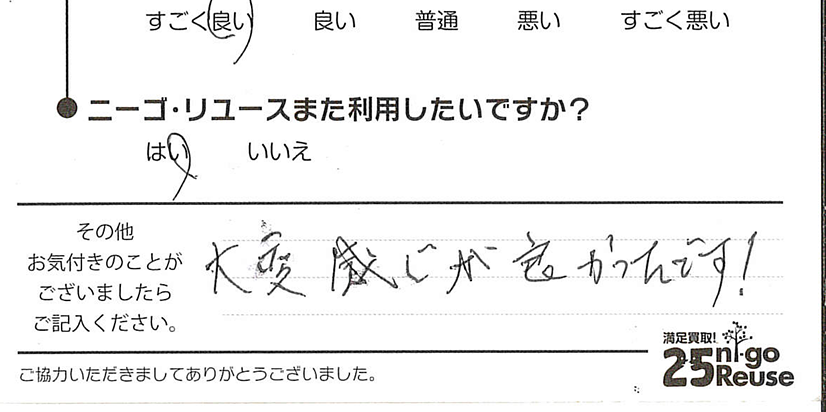 すごく良い 良い 普通 悪い すごく悪い
ニーゴ・リユースまた利用したいですか？
はい いいえ
その他
お気付きのことが
ございましたら
ご記入ください。
大変感じが良かったです！
満足買取!
25 ni-go
Reuse
ご協力いただきましてありがとうございました。